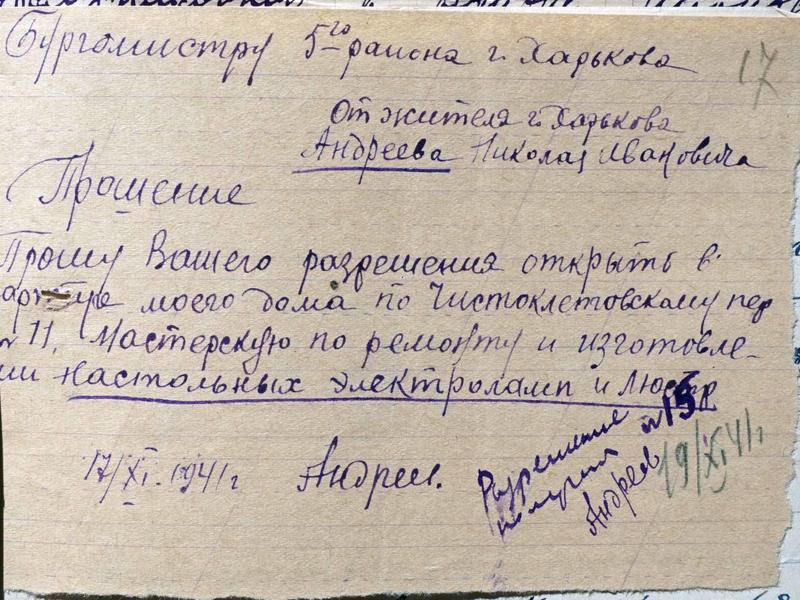 Бургомистру 5го района г. Харькова
17
От жителя г. Харькова
Андреева Николая Ивановича
Прошение
Прошу Вашего разрешения открыть в
моего дома по Чистоклетовскому пер
№ 11. Мастерскую по ремонту и изготовле-
ии настольных электроламп и люстр
17/XI. 1941 г Андреев.
Разрешение № 15
получил
Андреев
19/XI 41 г